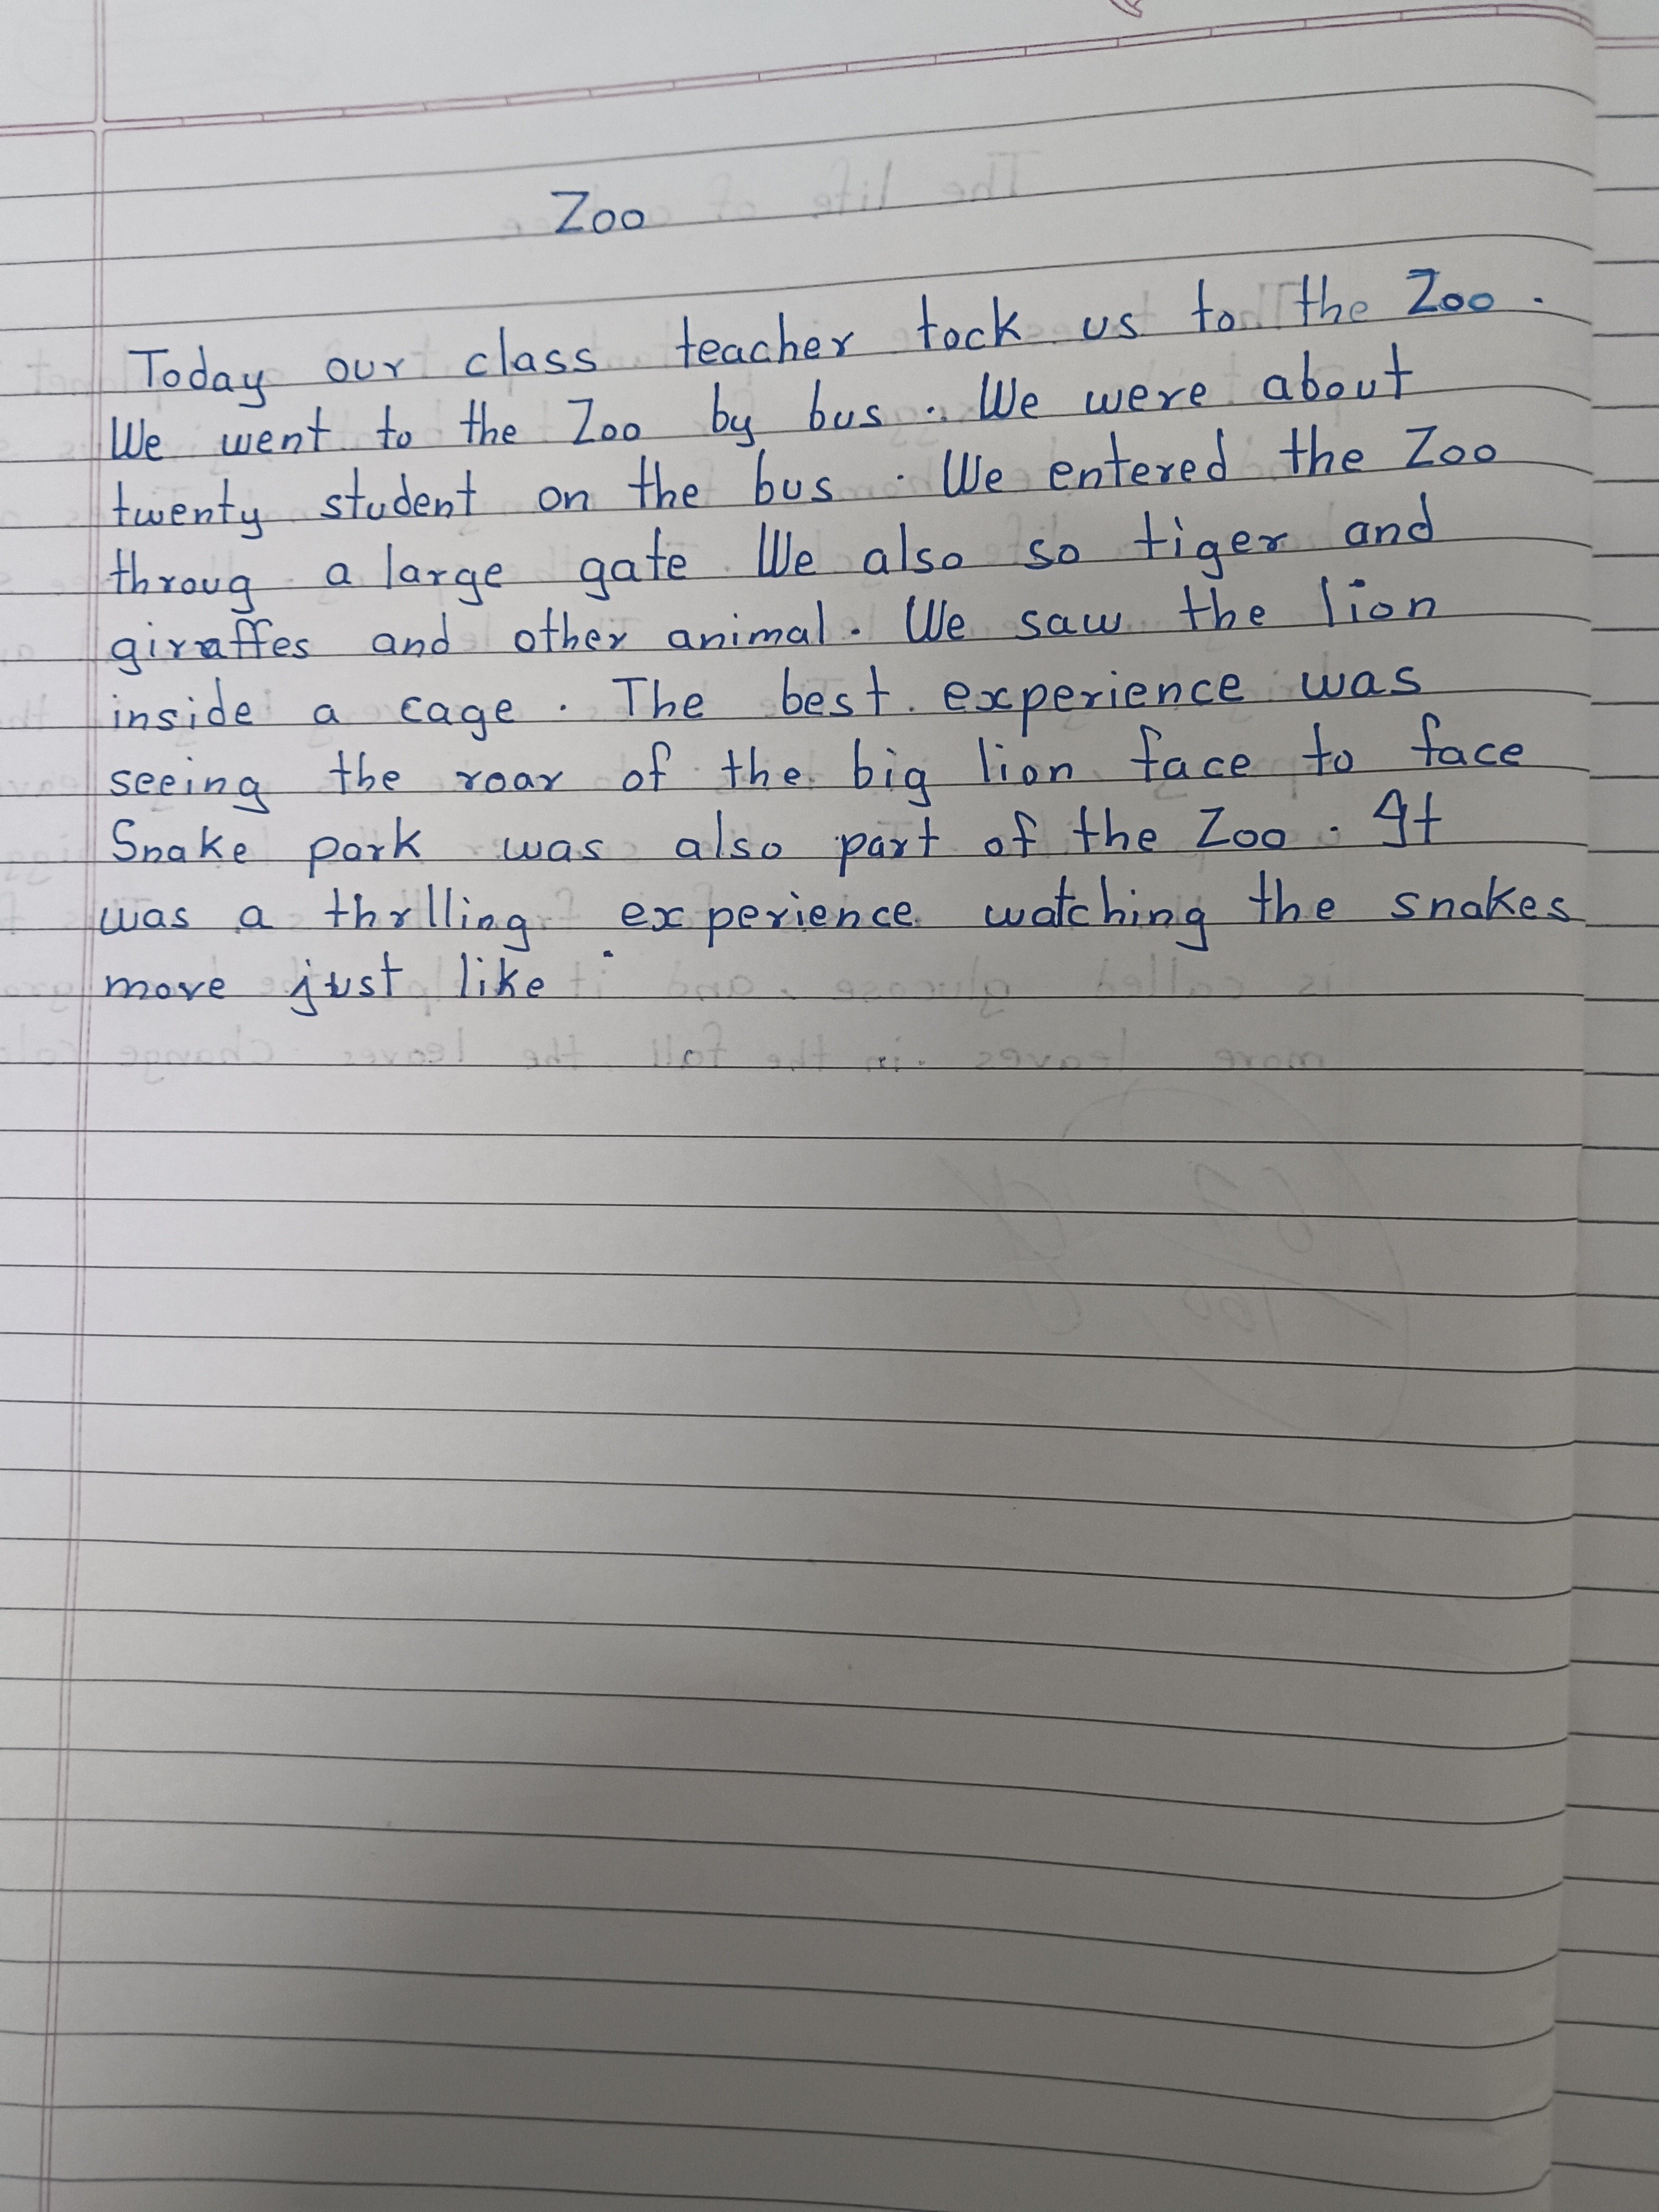 Zoo
Today our class teacher tock us to the Zoo.
We went to the Zoo by bus. We were about
twenty student on the bus. We entered the Zoo
throug a large gate. We also so tiger and
giraffes and other animal. We saw the lion
inside a cage. The best experience was
seeing the roar of the big lion face to face
Snake park was also part of the Zoo. It
was a thrlling experience watching the snakes
move just like